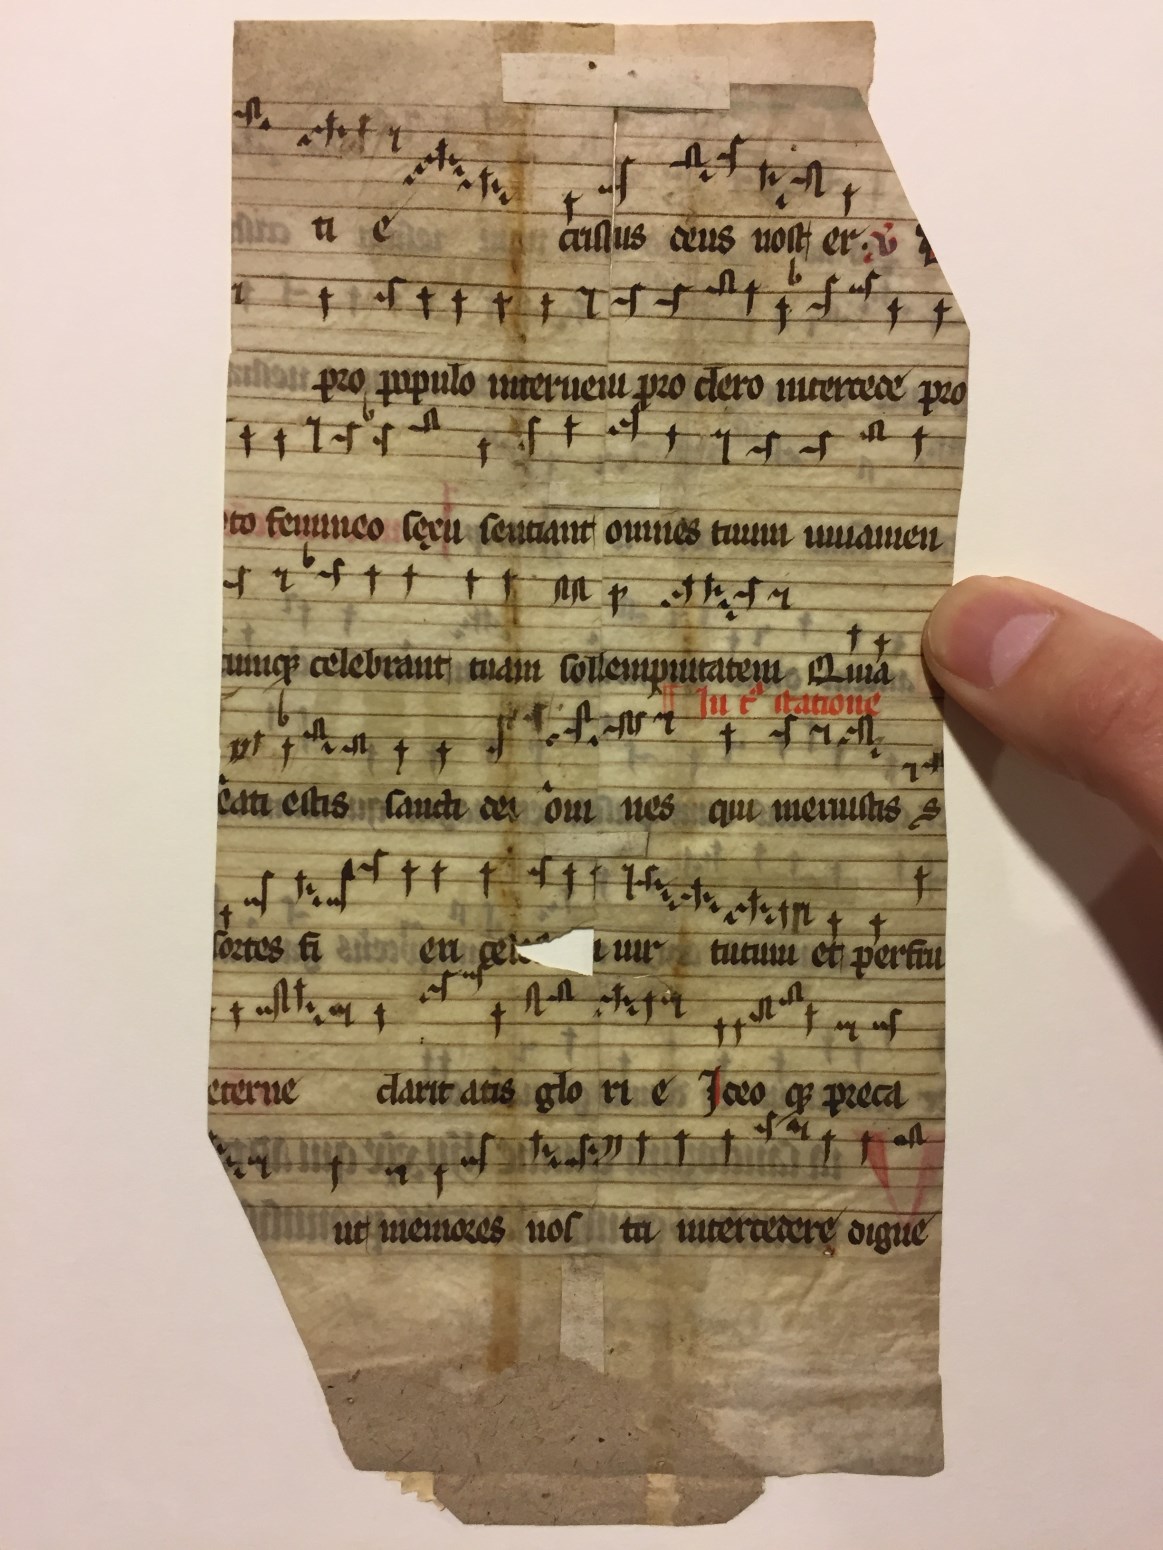 ti e cristus deus nost er. v
pro populo interueni pro clero intercede pro
to femineo sexu sentiant omnes tuum iuuamen
cumq celebrant tuam sollempnitatem Quia
In statione
eati estis sancti dei om nes qui meruistis
sortes fi eri uir tutum et perfru
eterne clarit atis glo ri e Ideo q preca
ut memores nos tri intercedere digne